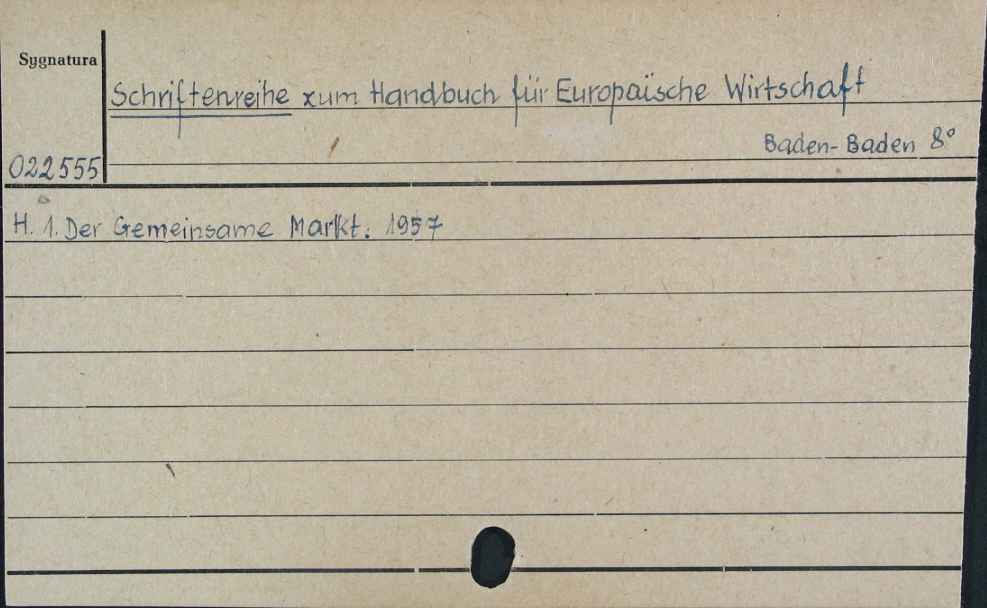 Sygnatura
Schriftenreihe zum Handbuch für Europäische Wirtschaft
Baden-Baden 8°
022555
H. 1. Der Gemeinsame Markt. 1957